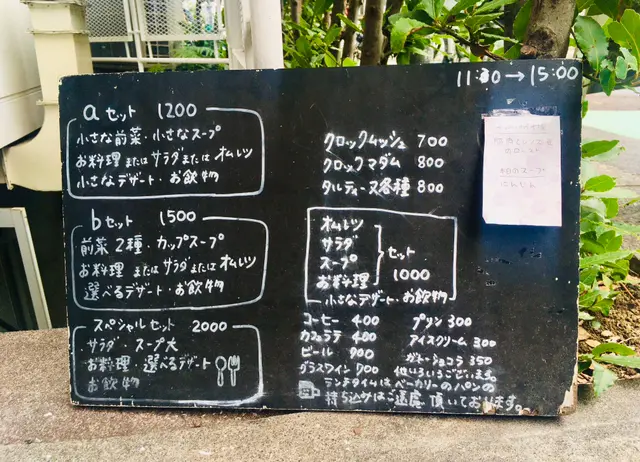 11:30→15:00
aセット 1200
小さな前菜・小さなスープ
お料理 または サラダ または オムレツ
小さなデザート・お飲物
bセット 1500
前菜2種・カップスープ
お料理 または サラダ または オムレツ
選べるデザート・お飲物
スペシャルセット 2000
サラダ・スープ大
お料理・選べるデザート
お飲物
クロックムッシュ 700
クロックマダム 800
タルティーヌ各種 800
オムレツ
サラダ
スープ
お料理
セット
1000
小さなデザート・お飲物
コーヒー 400
カフェラテ 400
ビール 900
グラスワイン 700
プリン 300
アイスクリーム 300
ガトーショコラ 350
他いろいろございます。
ランチタイムは ベーカリーの パンの
持ち込みはご遠慮 頂いております。
にんじん